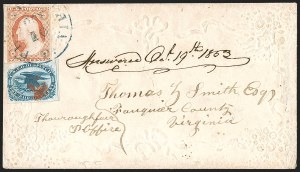 Answered Oct. 19th 1853
Thomas Smith Esqr
Fauquier County
Virginia
Thouroughfair
P. Office